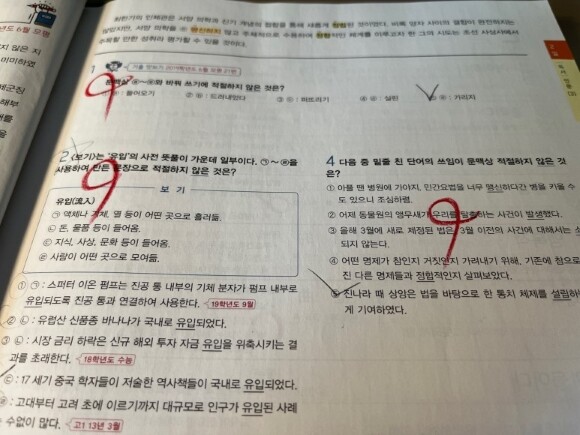 최한기의 인체관은 서양 의학과 신기 개념의 접합을 통해 새롭게 정립된 것이었다. 비록 양자 사이의 결합이 완전하지는
않았지만, 서양 의학을 맹신하지 않고 주체적으로 수용하여 정합적인 체계를 이루고자 한 그의 시도는 조선 사상사에서
주목할 만한 성취라 평가할 수 있을 것이다.
1 기출 변형가 2019학년도 6월 모평 21번
문맥상 ⓐ~ⓔ와 바꿔 쓰기에 적절하지 않은 것은?
들어오기 ② ⓑ: 드러내었다 ③ ⓒ: 퍼뜨리기 ④ ⓓ: 실린 ⓔ: 가리지
2 <보기>는 '유입'의 사전 뜻풀이 가운데 일부이다. ㉠~㉣을
사용하여 만든 문장으로 적절하지 않은 것은?
보 기
유입(流入)
㉠ 액체나 기체, 열 등이 어떤 곳으로 흘러듦.
㉡ 돈, 물품 등이 들어옴.
㉢ 지식, 사상, 문화 등이 들어옴.
㉣ 사람이 어떤 곳으로 모여듦.
① ㉠: 스퍼터 이온 펌프는 진공 통 내부의 기체 분자가 펌프 내부로
유입되도록 진공 통과 연결하여 사용한다. 19학년도 9월
② ㉡: 유럽산 신품종 바나나가 국내로 유입되었다.
③ ㉡: 시장 금리 하락은 신규 해외 투자 자금 유입을 위축시키는 결
과를 초래한다. 18학년도 수능
㉢: 17세기 중국 학자들이 저술한 역사책들이 국내로 유입되었다.
㉣: 고대부터 고려 초에 이르기까지 대규모로 인구가 유입된 사례
수없이 많다. 고1 13년 3월
4 다음 중 밑줄 친 단어의 쓰임이 문맥상 적절하지 않은 것
은?
① 아플 땐 병원에 가야지, 민간요법을 너무 맹신하다간 병을 키울 수
도 있으니 조심하렴.
② 어제 동물원의 앵무새가 우리를 탈출하는 사건이 발생했다.
③ 올해 3월에 새로 제정된 법은 3월 이전의 사건에 대해서는 소
되지 않는다.
④ 어떤 명제가 참인지 거짓인지 가려내기 위해, 기존에 참으로
진 다른 명제들과 정합적인지 살펴보았다.
⑤ 진나라 때 상앙은 법을 바탕으로 한 통치 체제를 설립하
게 기여하였다.